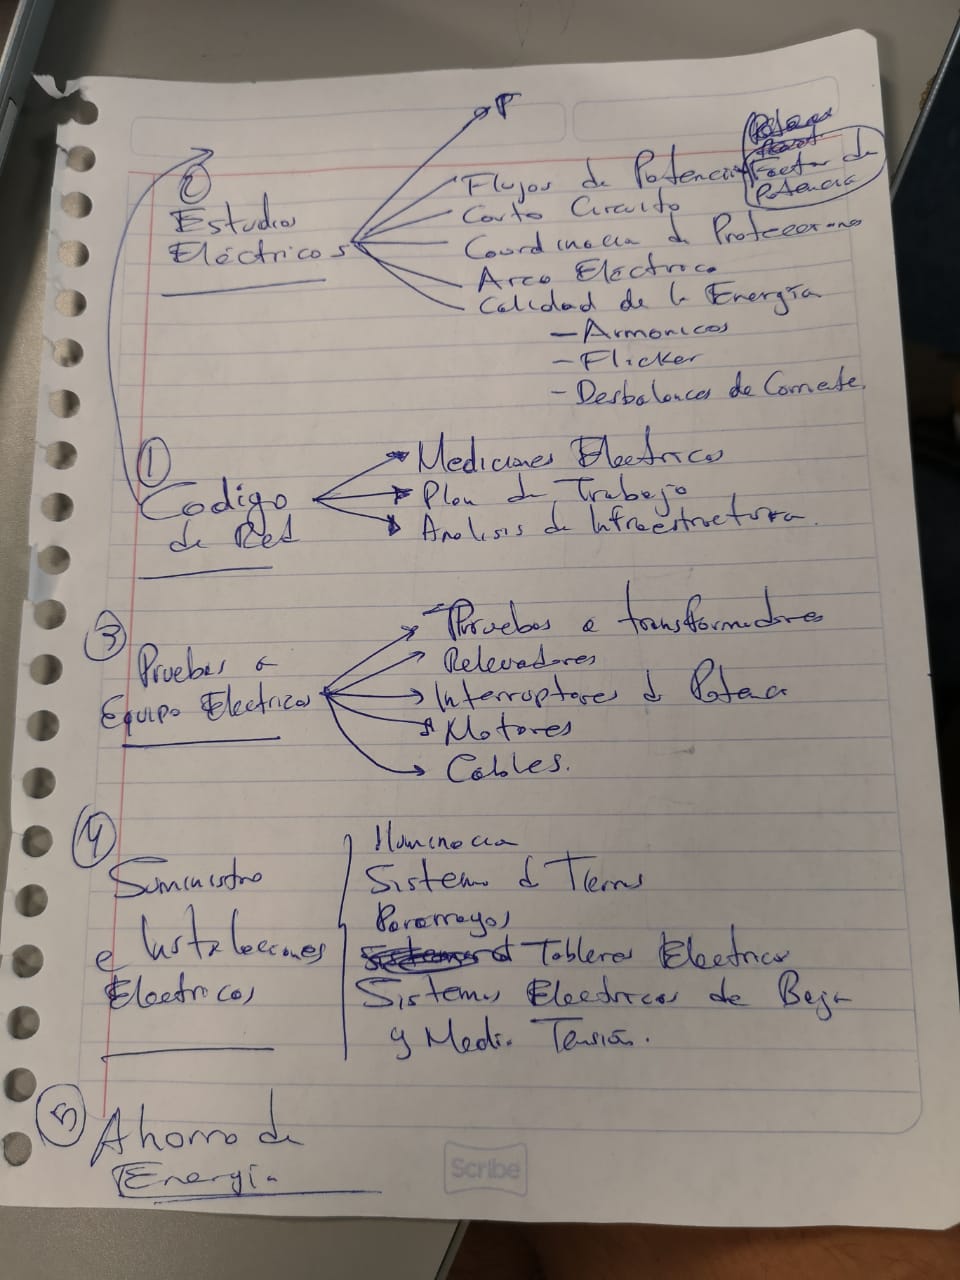 P
2
Estudios
Eléctricos
Flujos de Potencia
Factor de
Potencia
Corto Circuito
Coordinación d Protecciones
Arco Eléctrico
Calidad de la Energía
- Armonicos
- Flicker
- Desbalances de Corriente.
1
Codigo
de Red
Mediciones Electricas
Plan de Trabajo
Analisis de Infraestructura.
3
Pruebas a
Equipo Electricos
Pruebas a transformadores
Relevadores
Interruptores d Potencia
Motores
Cables.
4
Suministro
e Instalaciones
Electricas
Iluminacion
Sistema d Tierras
Pararrayos
Tableros Electricos
Sistemas Electricos de Baja
y Media Tensión.
5
Ahorro de
Energía
Scribe